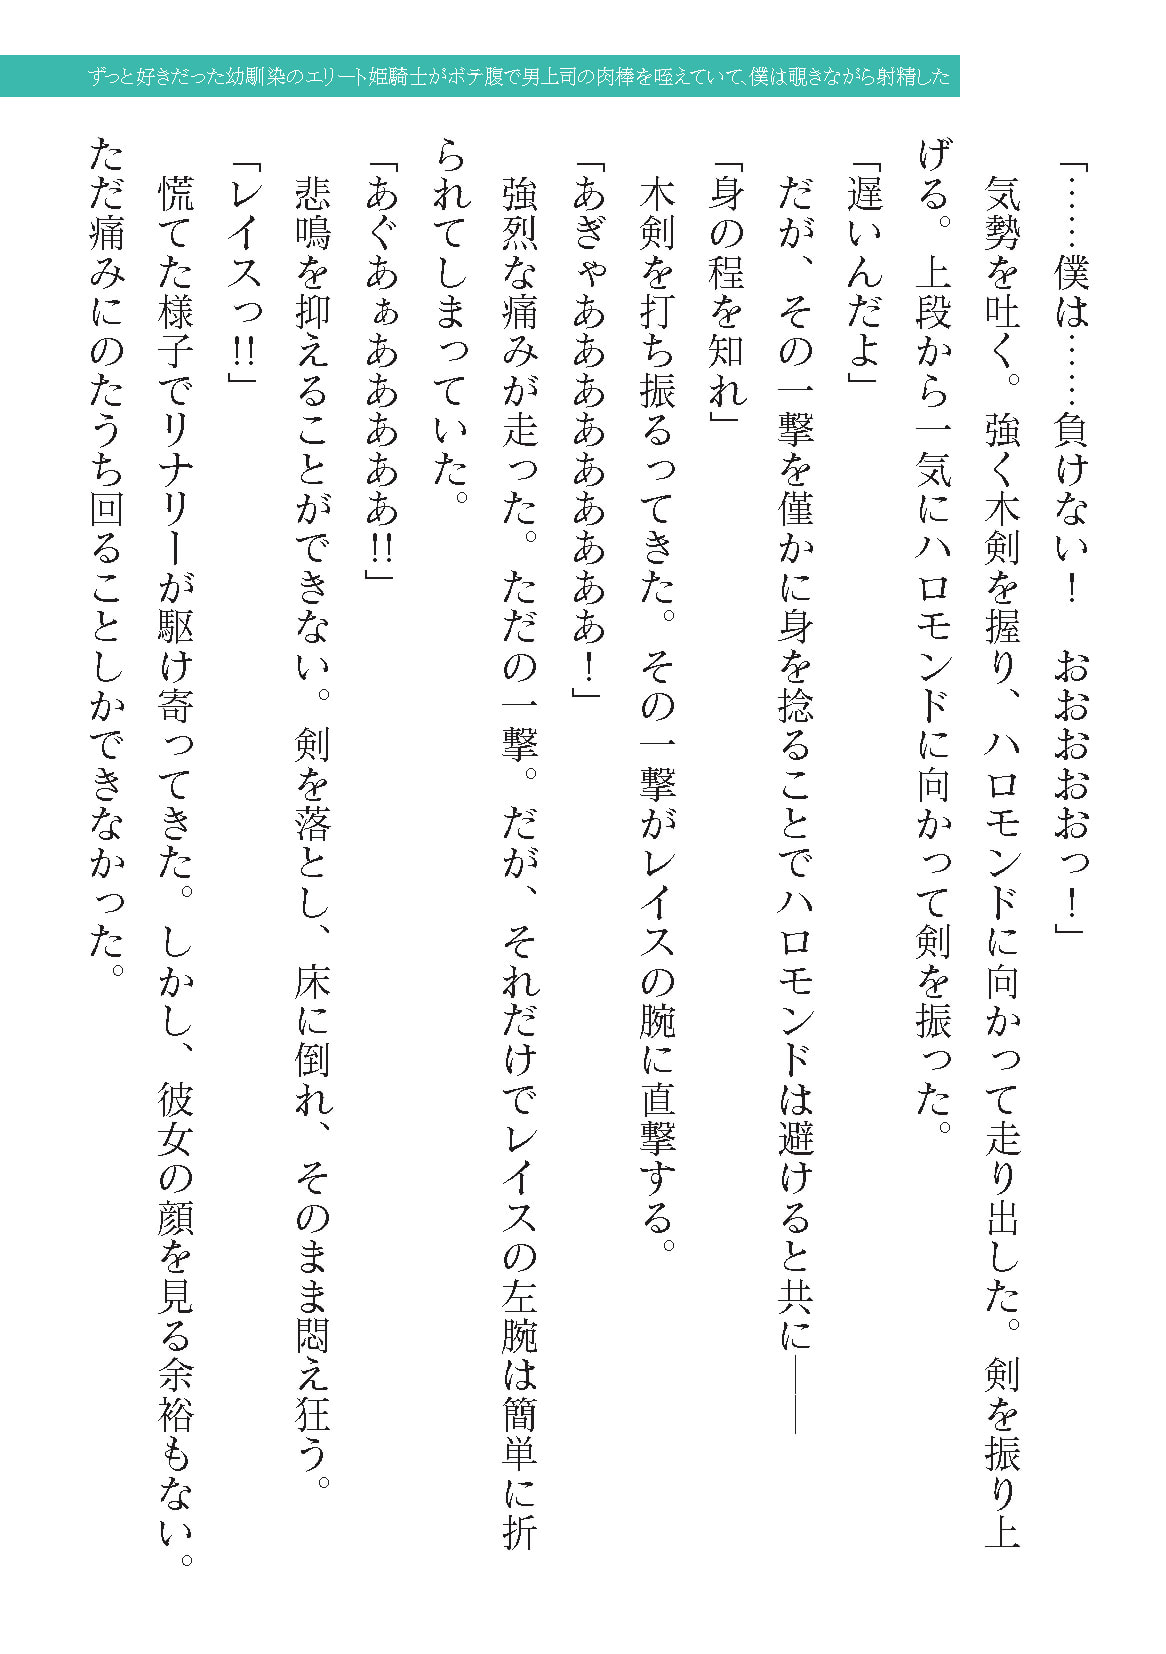 ずっと好きだった幼馴染のエリート姫騎士がボテ腹で男上司の肉棒を咥えていて、僕は覗きながら射精した
「……僕は……負けない！　おおおおおっ！」
　気勢を吐く。強く木剣を握り、ハロモンドに向かって走り出した。剣を振り上
げる。上段から一気にハロモンドに向かって剣を振った。
「遅いんだよ」
　だが、その一撃を僅かに身を捻ることでハロモンドは避けると共に――
「身の程を知れ」
　木剣を打ち振るってきた。その一撃がレイスの腕に直撃する。
「あぎゃあああああああああ！」
　強烈な痛みが走った。ただの一撃。だが、それだけでレイスの左腕は簡単に折
られてしまっていた。
「あぐあぁあああああ!!」
　悲鳴を抑えることができない。剣を落とし、床に倒れ、そのまま悶え狂う。
「レイスっ!!」
　慌てた様子でリナリーが駆け寄ってきた。しかし、彼女の顔を見る余裕もない。
ただ痛みにのたうち回ることしかできなかった。